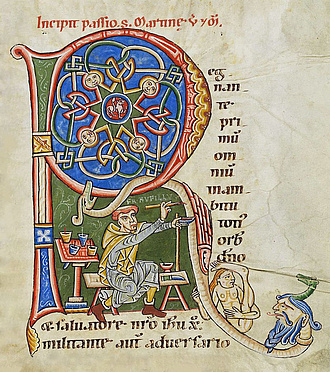 Incipit passio s. Martine V &
R
eg
nan
te
pri
mū
om
niū
inam
bitu
orb
dño
FR RUFILL
& saluatore nro ihu x
militante aut aduersario